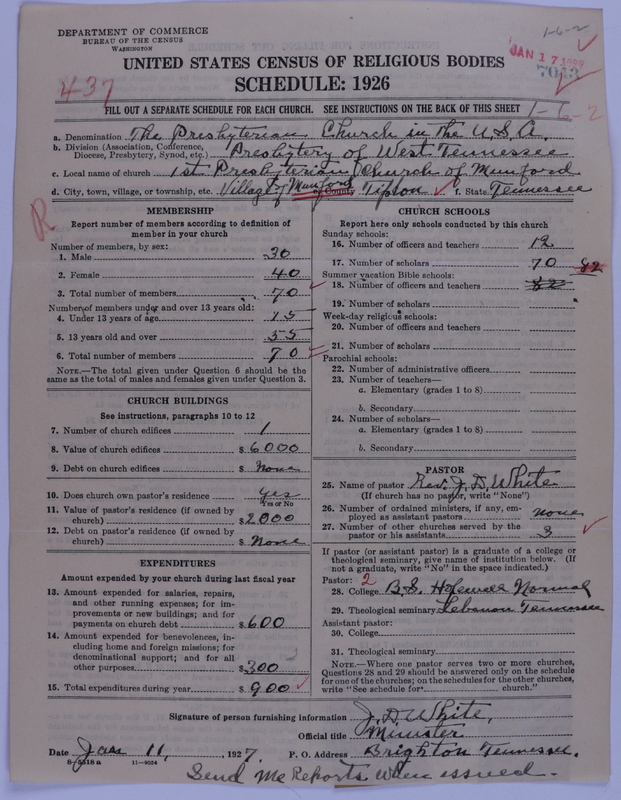 DEPARTMENT OF COMMERCE
BUREAU OF THE CENSUS
WASHINGTON
1-6-2
JAN 17
UNITED STATES CENSUS OF RELIGIOUS BODIES
SCHEDULE: 1926
437
FILL OUT A SEPARATE SCHEDULE FOR EACH CHURCH. SEE INSTRUCTIONS ON THE BACK OF THIS SHEET
1-6-2
a. Denomination The Presbyterian Church in the U.S.A.
b. Division (Association, Conference, Diocese, Presbytery, Synod, etc.) Presbytery of West Tennessee
c. Local name of church 1st Presbyterian Church of Munford
d. City, town, village, or township, etc. Village of Munford e. County Tipton f. State Tennessee
R
MEMBERSHIP
Report number of members according to definition of member in your church
Number of members, by sex:
1. Male 30
2. Female 40
3. Total number of members 70
Number of members under and over 13 years old:
4. Under 13 years of age 15
5. 13 years old and over 55
6. Total number of members 70
NOTE.—The total given under Question 6 should be the same as the total of males and females given under Question 3.
CHURCH BUILDINGS
See instructions, paragraphs 10 to 12
7. Number of church edifices 1
8. Value of church edifices $ 6000
9. Debt on church edifices $ None
10. Does church own pastor's residence Yes
Yes or No
11. Value of pastor's residence (if owned by church) $ 2000
12. Debt on pastor's residence (if owned by church) $ None
EXPENDITURES
Amount expended by your church during last fiscal year
13. Amount expended for salaries, repairs, and other running expenses; for improvements or new buildings; and for payments on church debt $ 600
14. Amount expended for benevolences, including home and foreign missions; for denominational support; and for all other purposes $ 300
15. Total expenditures during year $ 900
CHURCH SCHOOLS
Report here only schools conducted by this church
Sunday schools:
16. Number of officers and teachers 12
17. Number of scholars 70 82
Summer vacation Bible schools:
18. Number of officers and teachers 82
19. Number of scholars
Week-day religious schools:
20. Number of officers and teachers
21. Number of scholars
Parochial schools:
22. Number of administrative officers
23. Number of teachers—
a. Elementary (grades 1 to 8)
b. Secondary
24. Number of scholars—
a. Elementary (grades 1 to 8)
b. Secondary
PASTOR
25. Name of pastor Rev. J. D. White
(If church has no pastor, write "None")
26. Number of ordained ministers, if any, employed as assistant pastors none
27. Number of other churches served by the pastor or his assistants 3
If pastor (or assistant pastor) is a graduate of a college or theological seminary, give name of institution below. (If not a graduate, write "No" in the space indicated.)
Pastor: 2
28. College B.S. Normal
29. Theological seminary Lebanon Tennessee
Assistant pastor:
30. College
31. Theological seminary
NOTE.—Where one pastor serves two or more churches, Questions 28 and 29 should be answered only on the schedule for one of the churches; on the schedules for the other churches, write "See schedule for church."
Signature of person furnishing information J. D. White,
Official title Minister
Date Jan 11, 1927. P. O. Address Brighton Tennessee.
8-5518a 11-9034
Send Me Reports when issued.